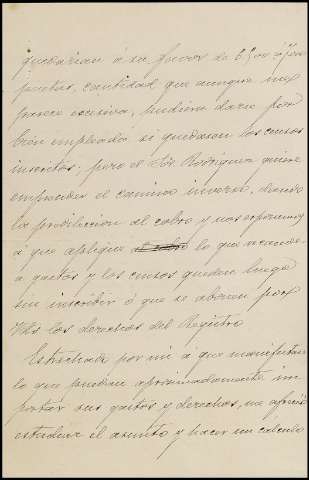 quedarían á su favor de 6500 á
pesetas, cantidad que aunque me
parece excesiva, pudiera darse por
bien empleada si quedasen los censos
inscritos; pero el Sr. Rodriguez quiere
emprender el camino inverso, dando
la predilección al cobro y nos exponemos
á que aplique lo que recaude
á gastos y los censos queden luego
sin inscribir ó que se abonen por
Vds los derechos del Registro
Estrechado por mi á que manifestara
lo que puedan aproximadamente im
portar sus gastos y derechos, me ofreció
estudiar el asunto y hacer un cálculo